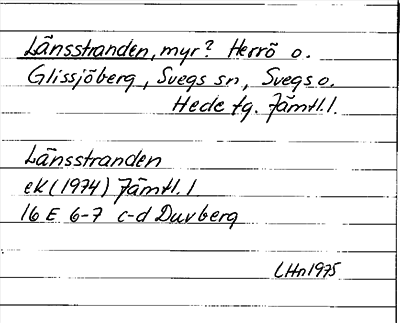 Länsstranden, myr? Herrö o.
Glissjöberg, Svegs sn, Svegs o.
Hede tg. Jämtl. l.
Länsstranden
ek (1974) Jämtl. l
16 E 6-7 c-d Duvberg
LHn 1975